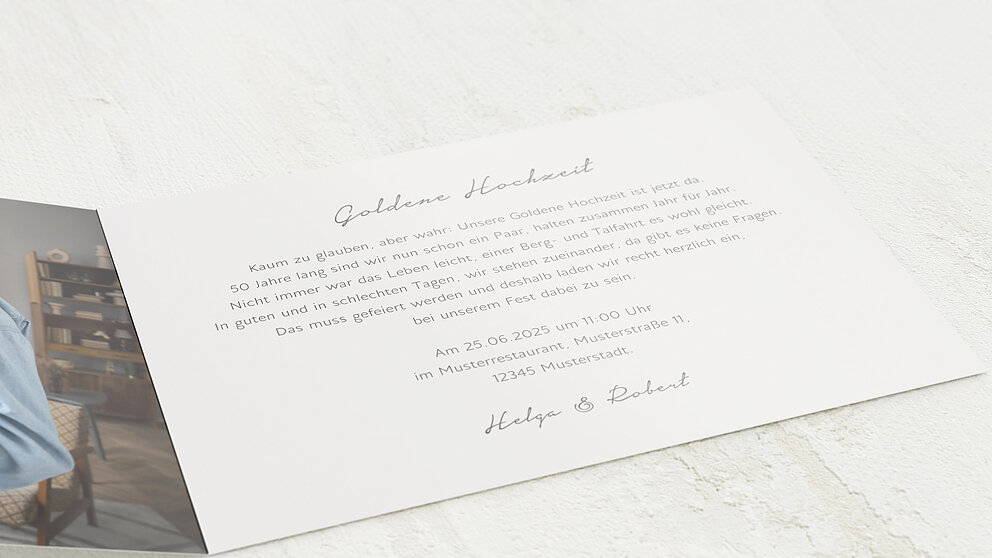 Goldene Hochzeit
Kaum zu glauben, aber wahr: Unsere Goldene Hochzeit ist jetzt da.
50 Jahre lang sind wir nun schon ein Paar, halten zusammen Jahr für Jahr.
Nicht immer war das Leben leicht, einer Berg- und Talfahrt es wohl gleicht.
In guten und in schlechten Tagen, wir stehen zueinander, da gibt es keine Fragen.
Das muss gefeiert werden und deshalb laden wir recht herzlich ein,
bei unserem Fest dabei zu sein.
Am 25.06.2025 um 11:00 Uhr
im Musterrestaurant, Musterstraße 11,
12345 Musterstadt.
Helga & Robert